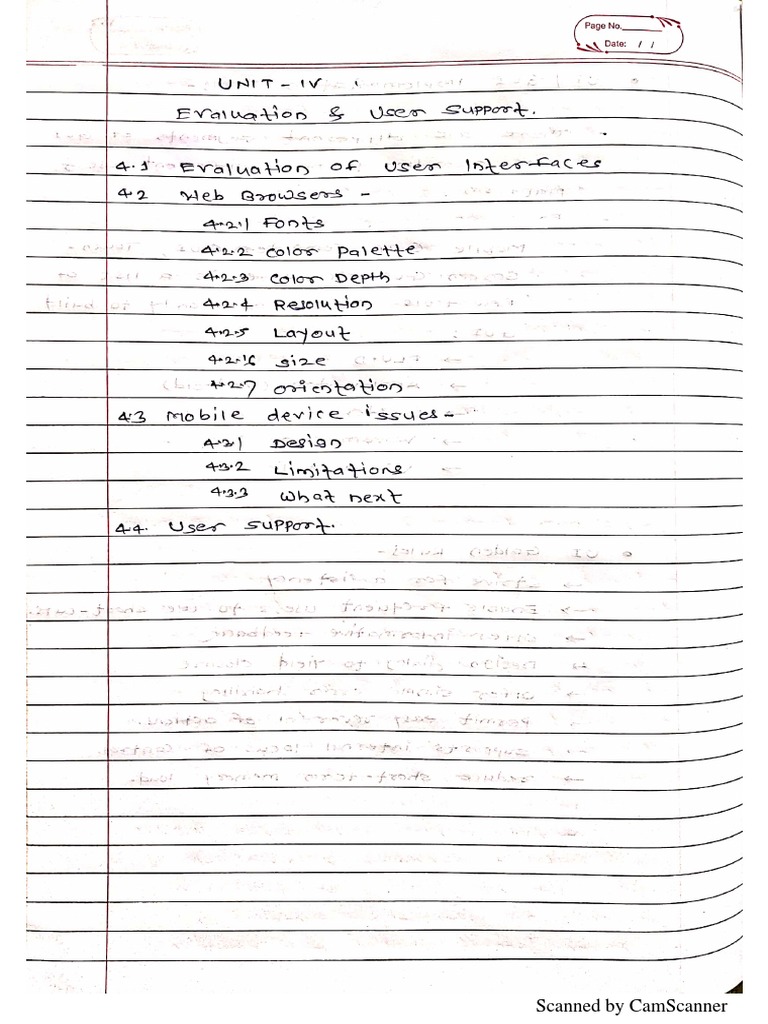 Page No.
Date: / /
UNIT - IV
Evaluation & User Support.
4.1 Evaluation of User Interfaces
4.2 Web Browsers -
4.2.1 Fonts
4.2.2 Color Palette
4.2.3 Color Depth
4.2.4 Resolution
4.2.5 Layout
4.2.6 Size
4.2.7 Orientation
4.3 Mobile device issues -
4.2.1 Design
4.3.2 Limitations
4.3.3 What next
4.4. User Support.
Scanned by CamScanner